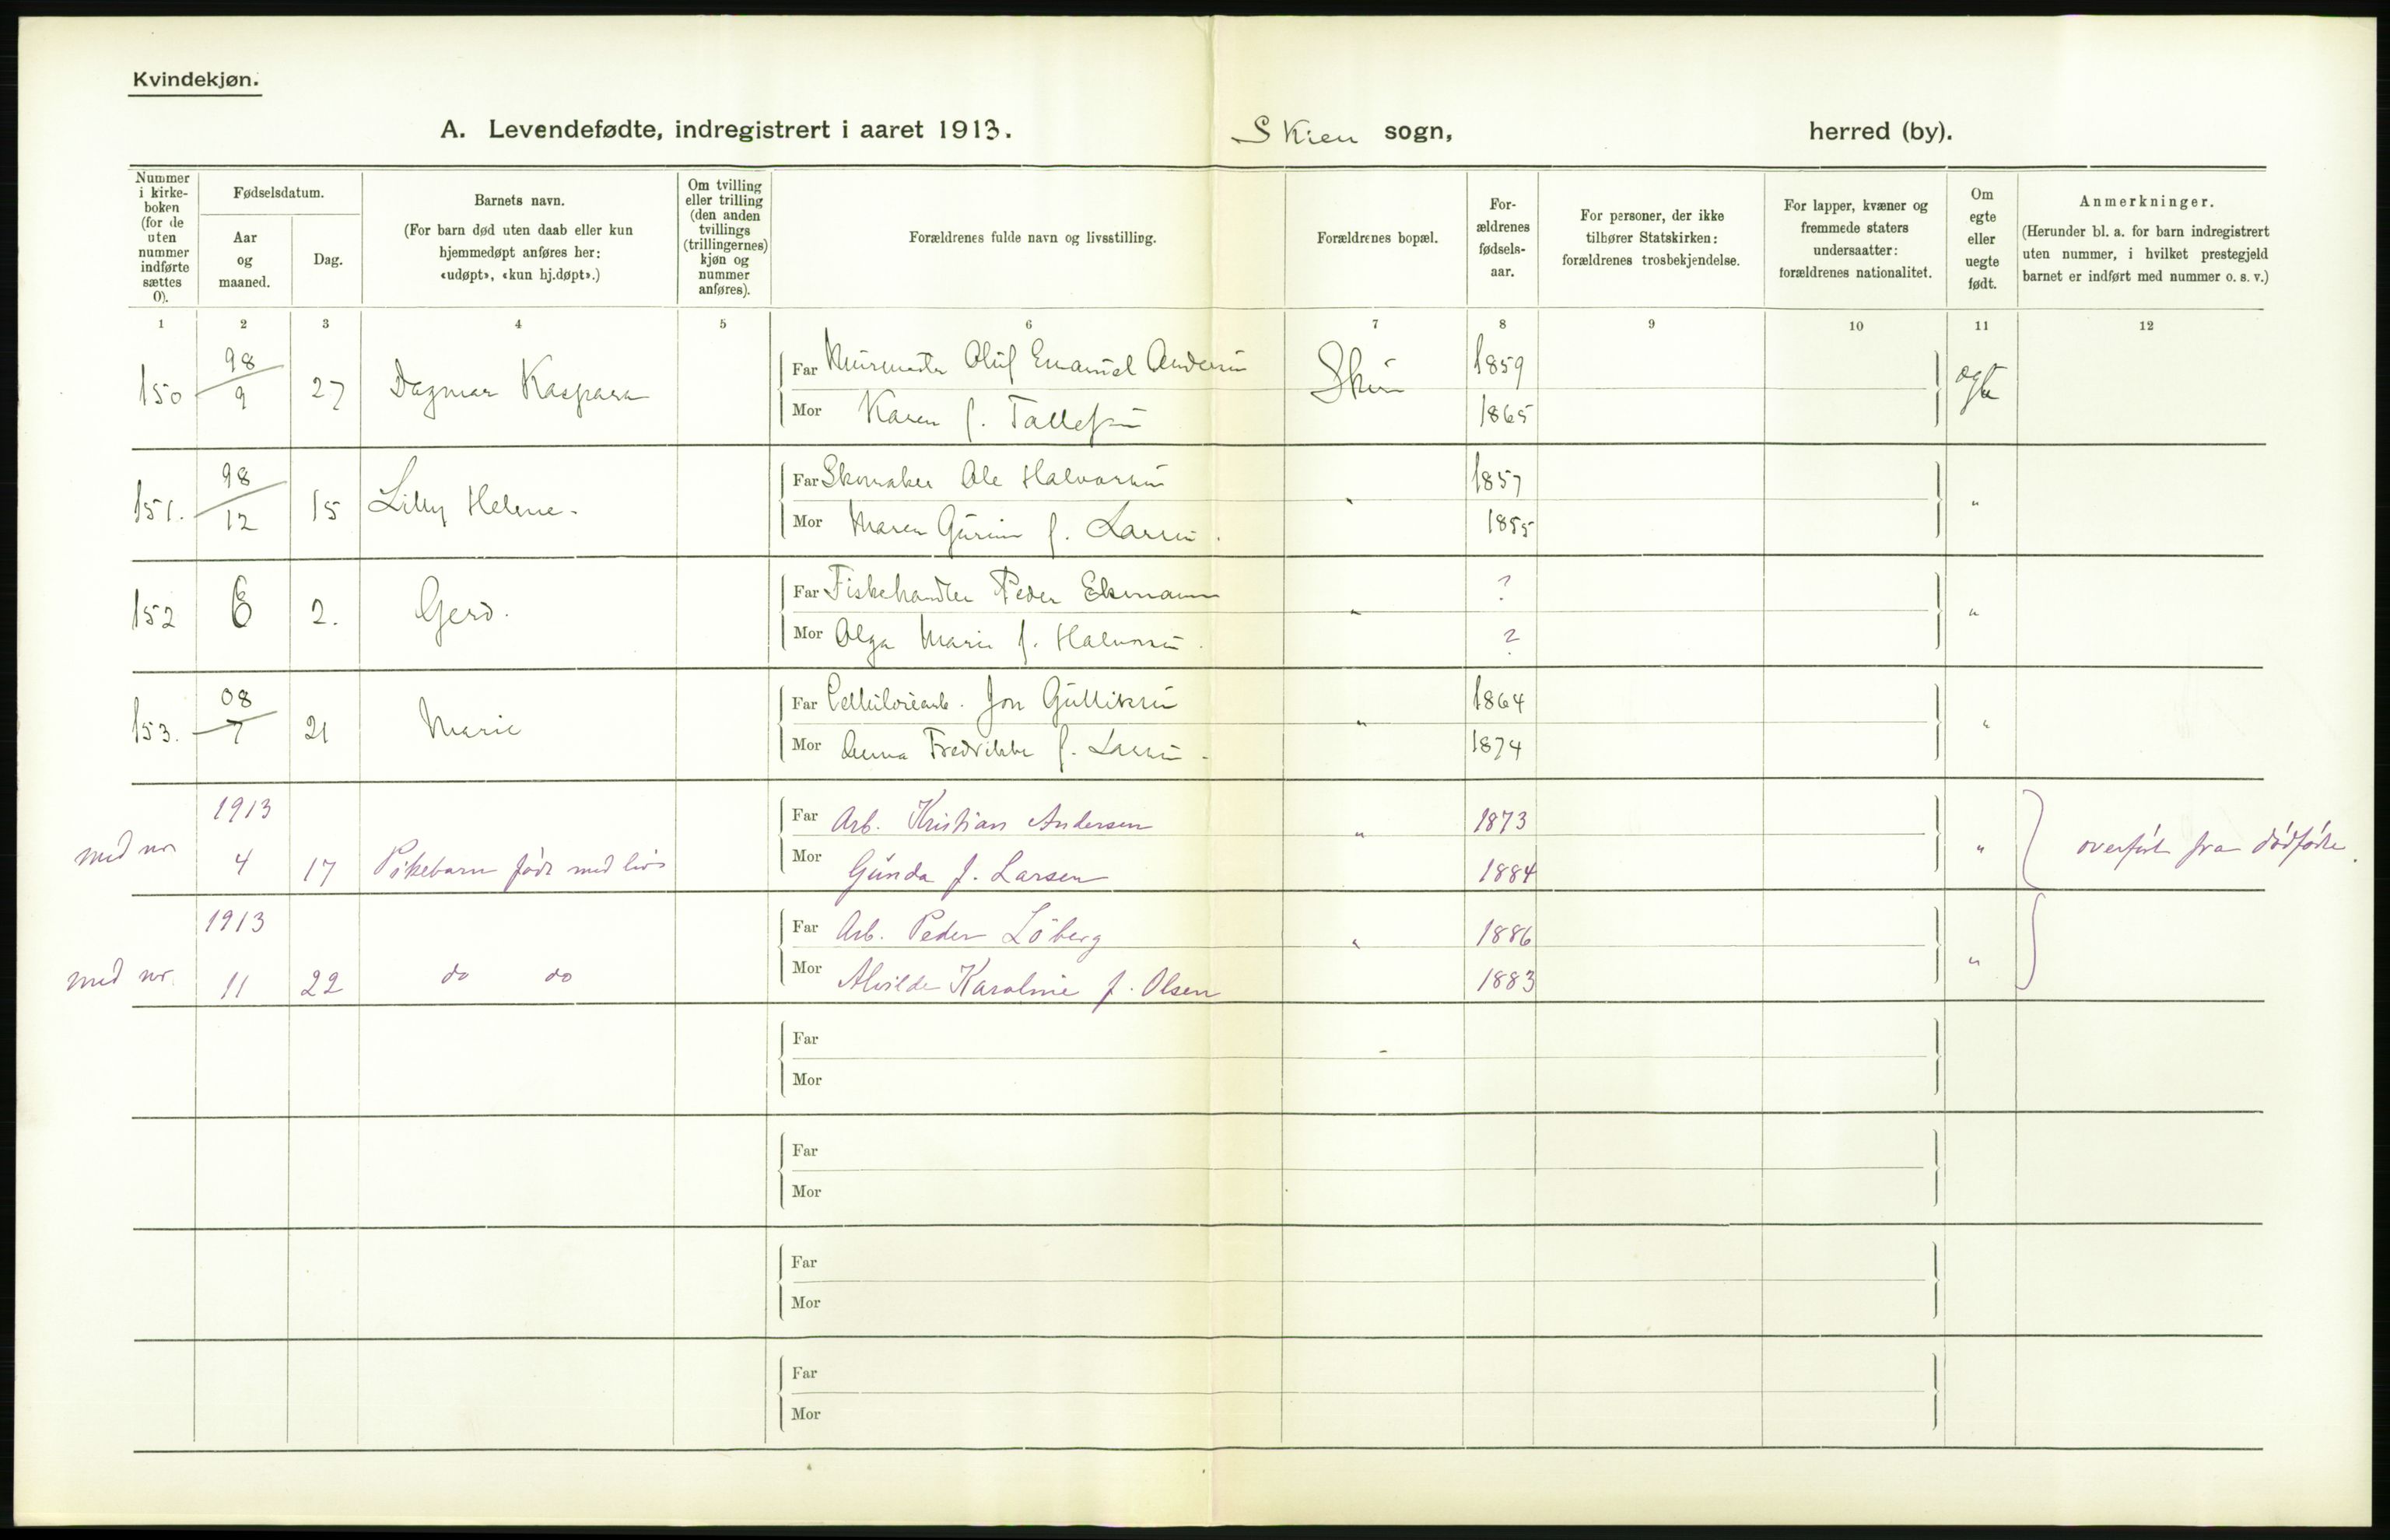 Kvindekjøn.
A. Levendefødte, indregistrert i aaret 1913.
Skien sogn,
herred (by).
Nummer i kirke-boken (for de uten nummer indførte sættes 0).
Fødselsdatum.
Aar og maaned.
Dag.
Barnets navn.
(For barn død uten daab eller kun
hjemmedøpt anføres her:
«udøpt», «kun hj.døpt».)
Om tvilling
eller trilling
(den anden
tvillings
(trillingernes)
kjøn og
nummer
anføres).
Forældrenes fulde navn og livsstilling.
Forældrenes bopæl.
For-
ældrenes
fødsels-
aar.
For personer, der ikke
tilhører Statskirken:
forældrenes trosbekjendelse.
For lapper, kvæner og
fremmede staters
undersaatter:
forældrenes nationalitet.
Om
egte
eller
uegte
født.
Anmerkninger.
(Herunder bl. a. for barn indregistrert
uten nummer, i hvilket prestegjeld
barnet er indført med nummer o. s. v.)
1 2 3 4 5 6 7 8 9 10 11 12
150 98/9 27 Dagmar Kaspara
Far Murmester Oluf Emanuel Andersen Skien 1859 egte
Mor Karen f. Tallefsen 1865
151. 98/12 15 Lilly Helene.
Far Skomaker Ole Halvorsen " 1857 "
Mor Maren Gurine f. Larsen. 1855
152 6 2. Gerd.
Far Fiskehandler Peder Ekmann " ? "
Mor Olga Marie f. Halvorsen. ?
153. 08/7 21 Marie
Far Cellulosearb. Jon Gulliksen " 1864 "
Mor Anna Fredrikke f. Larsen. 1874
med nr 1913 4 17 Pikebarn født med liv
Far Arb. Kristian Andersen " 1873 " overført fra dødfødte.
Mor Gunda f. Larsen 1884
med nr. 1913 11 22 do do
Far Arb. Peder Löberg " 1886 "
Mor Alvilde Karoline f. Olsen 1883
Far
Mor
Far
Mor
Far
Mor
Far
Mor